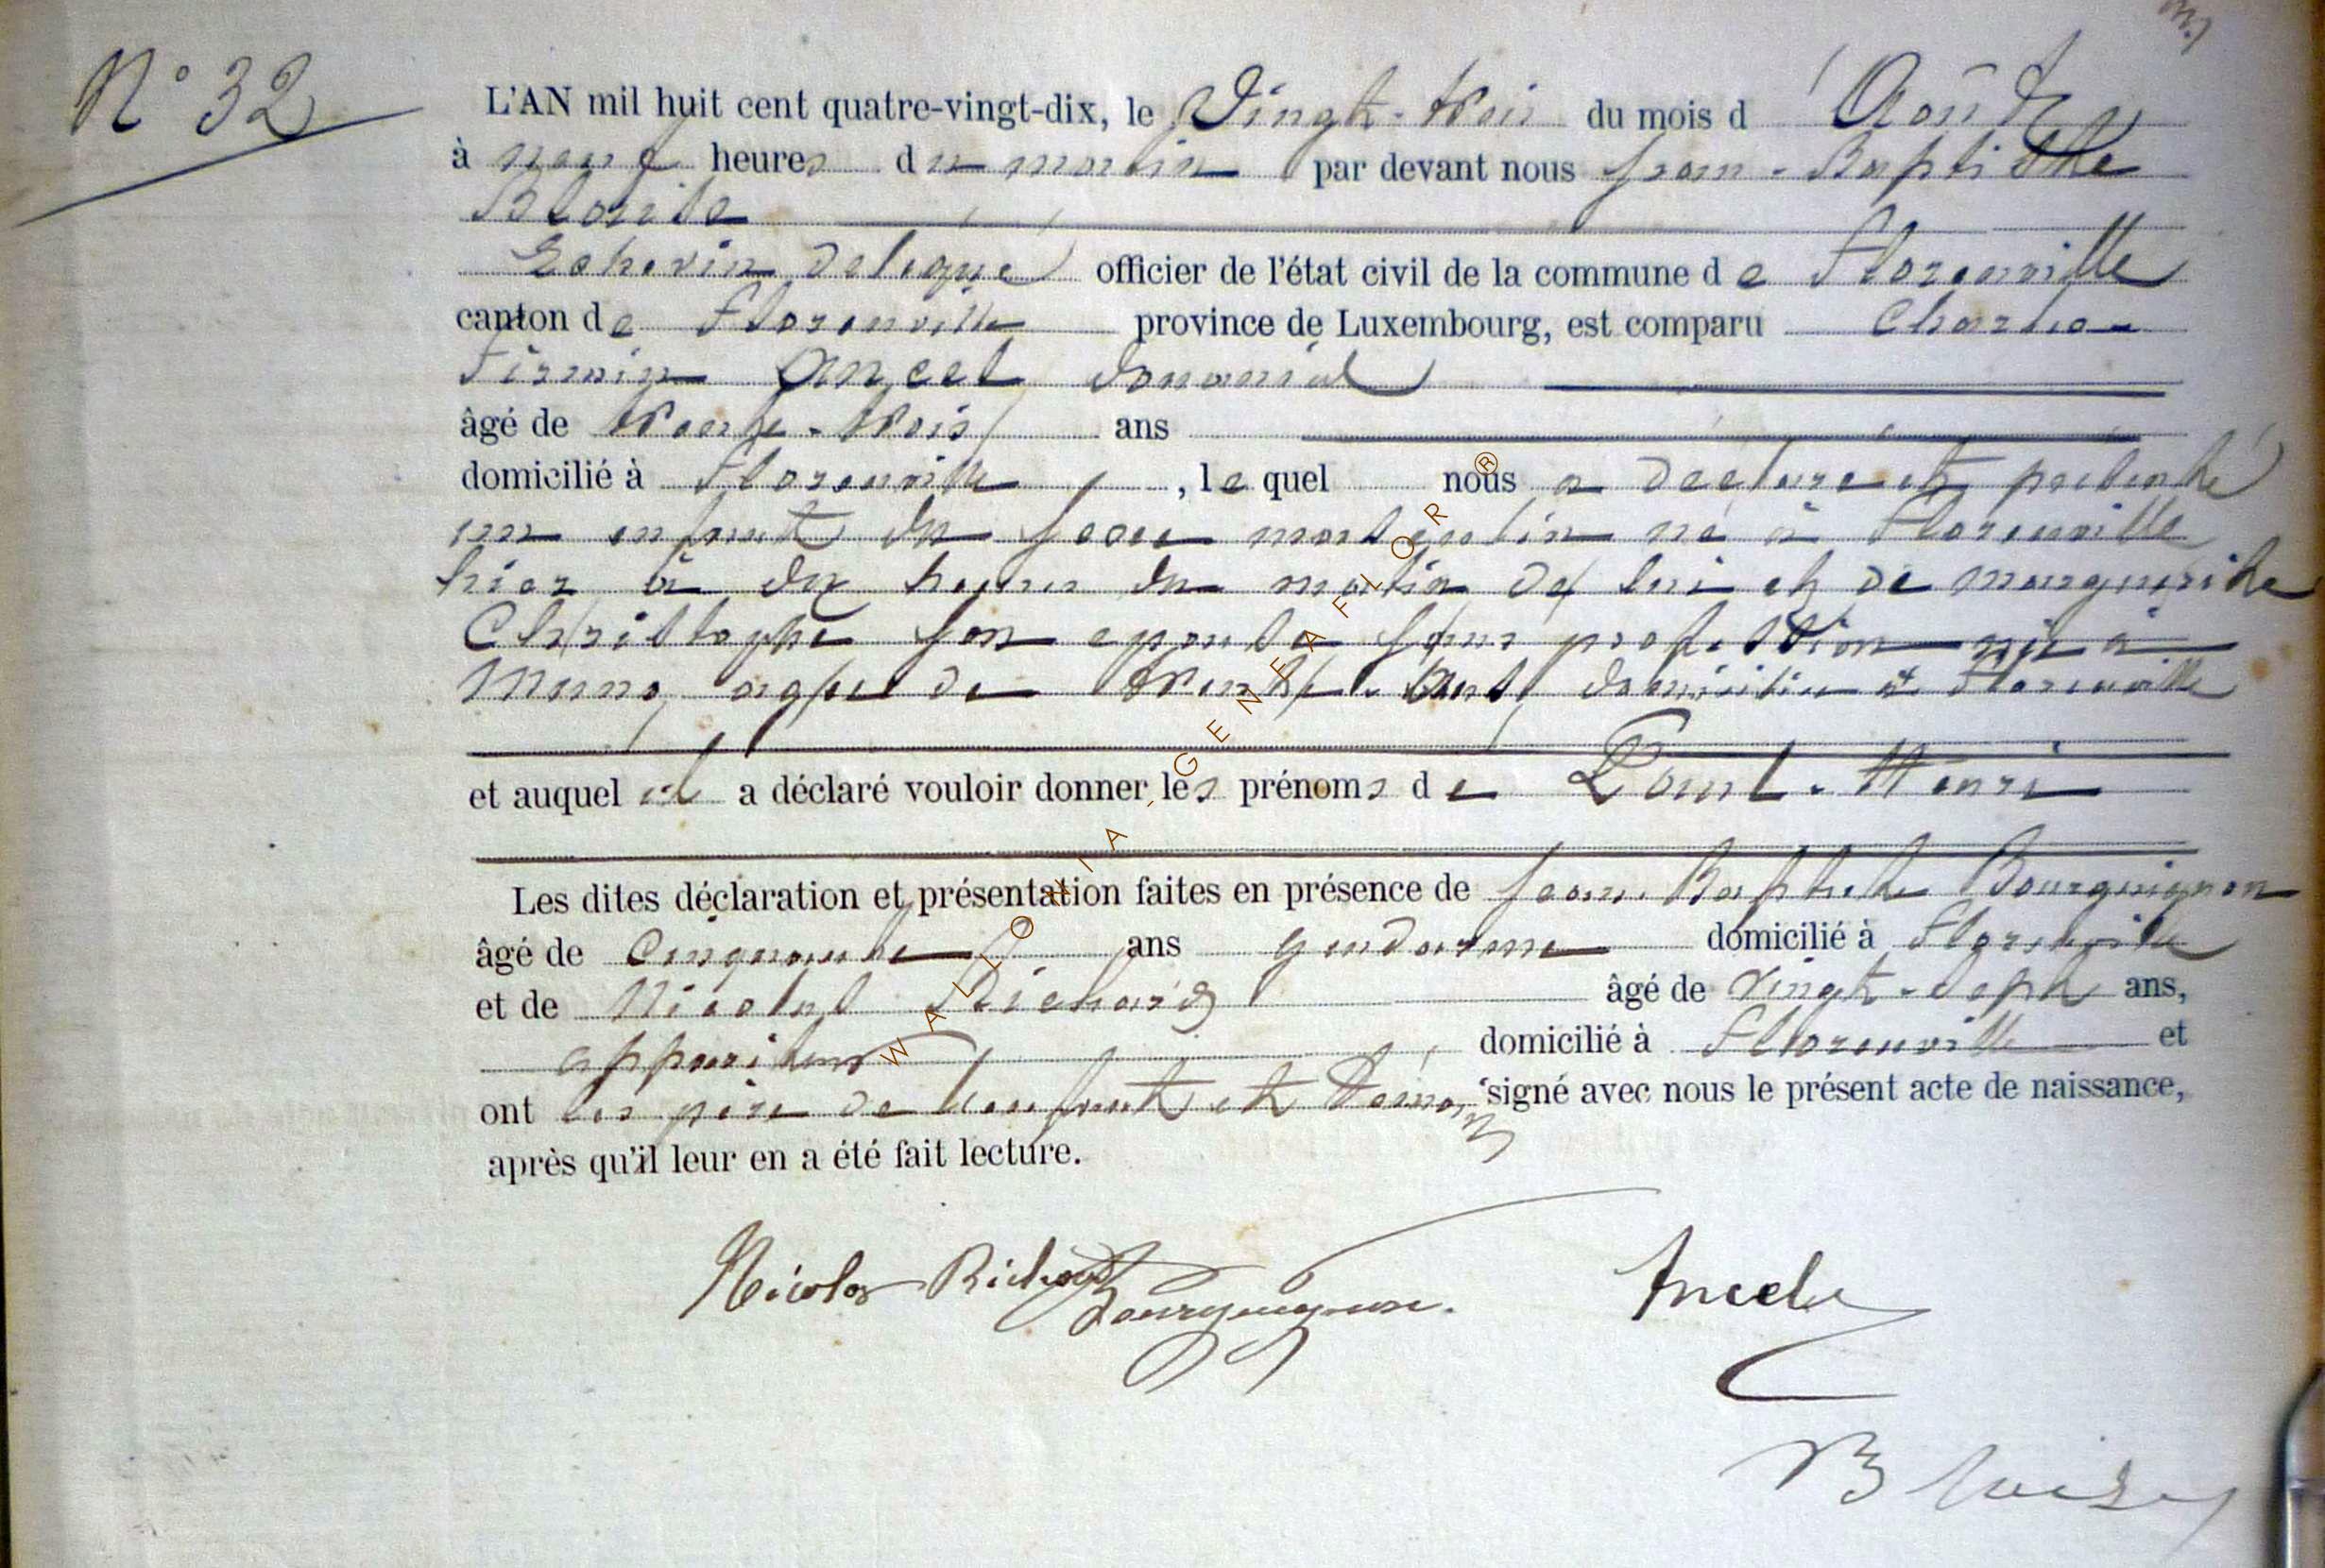 N° 32
L'AN mil huit cent quatre-vingt-dix, le Vingt-trois du mois d'Août
à neuf heures du matin par devant nous Jean-Baptiste
Echevin délégué officier de l'état civil de la commune de Florenville
canton de Florenville province de Luxembourg, est comparu Charles
Firmin Ancel
âgé de trente-trois ans
domicilié à Florenville, lequel nous a déclaré et présenté
un enfant du sexe masculin né à Florenville
hier à dix heures du matin de lui et de Marguerite
Christophe son epouse sans profession née à
Muno agée de trente domiciliée à Florenville
et auquel il a déclaré vouloir donner les prénoms de Paul-Henri
Les dites déclaration et présentation faites en présence de Jean-Baptiste Bourguignon
âgé de Cinquante ans gendarme domicilié à Florenville
et de Nicolas Richard âgé de Vingt-sept ans,
appariteur domicilié à Florenville et
ont les père de l'enfant et témoins signé avec nous le présent acte de naissance,
après qu'il leur en a été fait lecture.
Nicolas Richard Bourguignon. Ancel
WALLONIA - GENEAFLOR ®